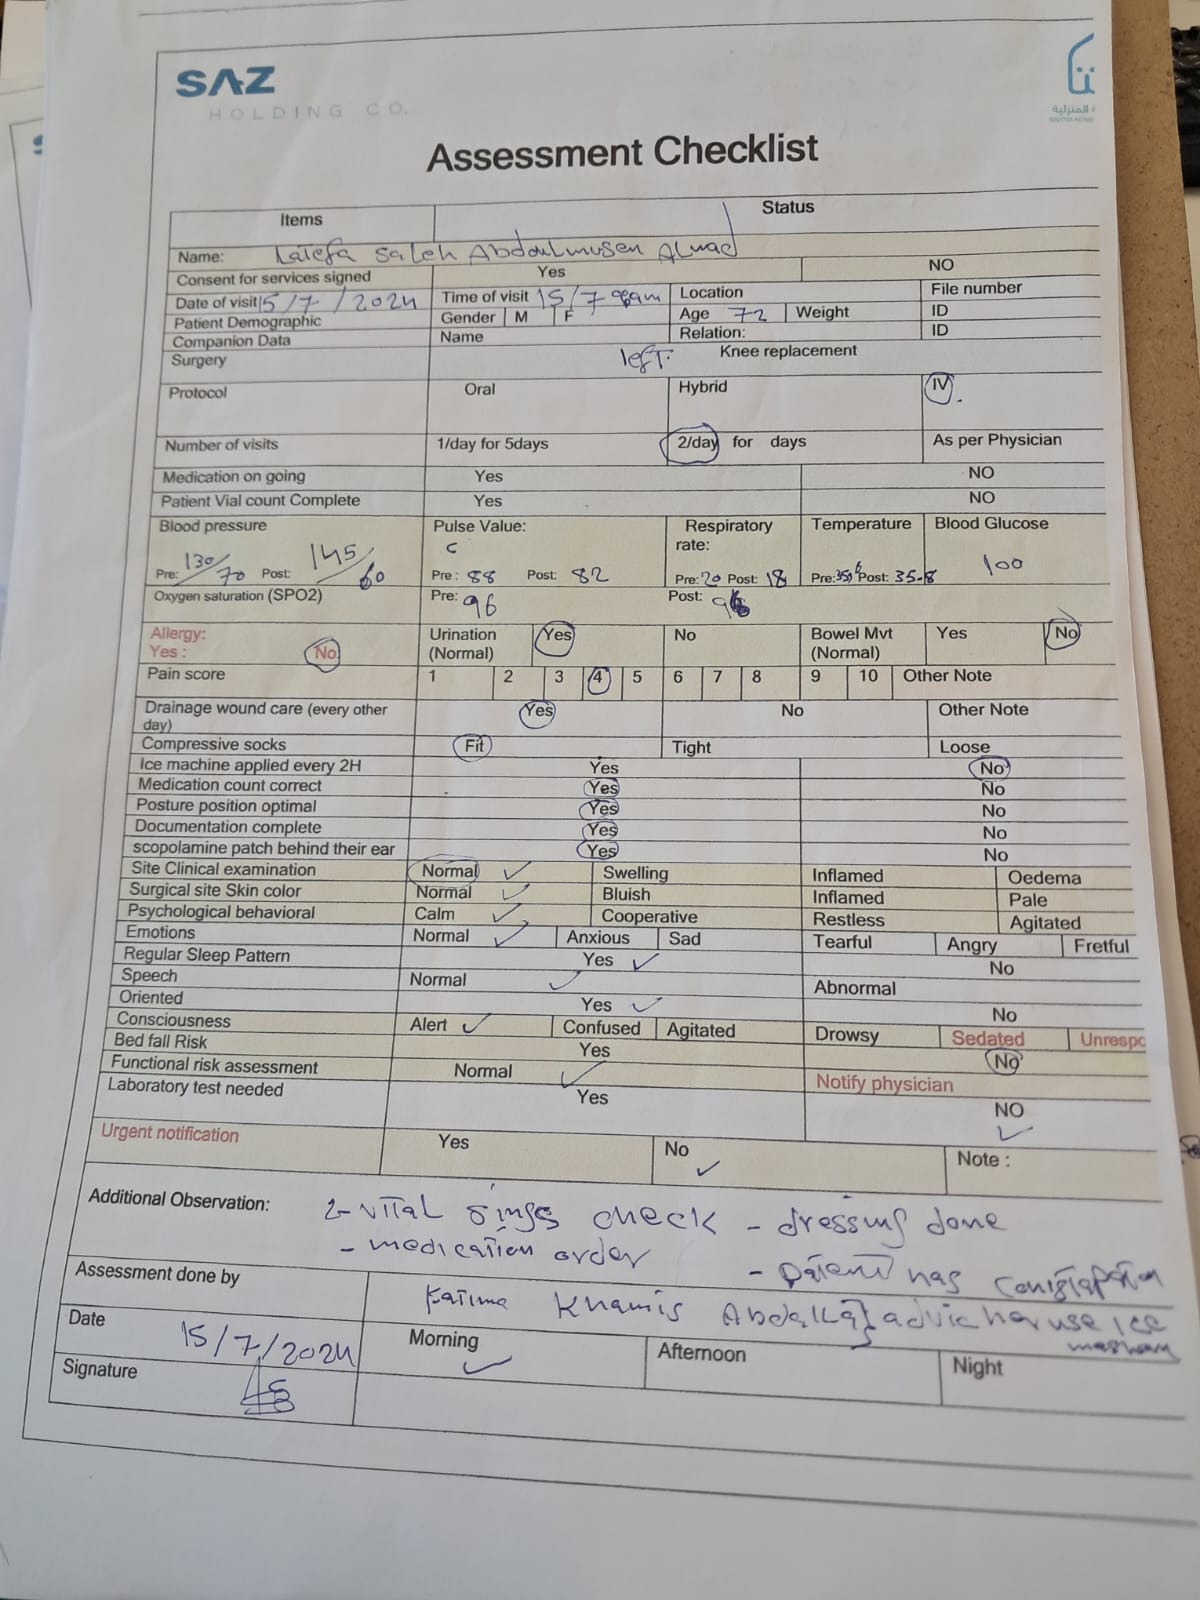 SAZ
HOLDING CO.
المنزلية
Assessment Checklist
Items Status
Name: Latefa Saleh Abdoulmusen
Consent for services signed Yes NO
Date of visit 15/7/2024 Time of visit 15/7 am Location File number
Patient Demographic Gender M F Age 72 Weight ID
Companion Data Name Relation: ID
Surgery left. Knee replacement
Protocol Oral Hybrid IV
Number of visits 1/day for 5days 2/day for days As per Physician
Medication on going Yes NO
Patient Vial count Complete Yes NO
Blood pressure Pulse Value: Respiratory rate: Temperature Blood Glucose
Pre: 130/70 Post: 145/60 Pre: 88 Post: 82 Pre: 20 Post: 18 Pre: Post: 35.8 100
Oxygen saturation (SPO2) Pre: 96 Post:
Allergy: Urination (Normal) Yes No Bowel Mvt (Normal) Yes No
Yes : No
Pain score 1 2 3 4 5 6 7 8 9 10 Other Note
Drainage wound care (every other day) Yes No Other Note
Compressive socks Fit Tight Loose
Ice machine applied every 2H Yes No
Medication count correct Yes No
Posture position optimal Yes No
Documentation complete Yes No
scopolamine patch behind their ear Yes No
Site Clinical examination Normal Swelling Inflamed Oedema
Surgical site Skin color Normal Bluish Inflamed Pale
Psychological behavioral Calm Cooperative Restless Agitated
Emotions Normal Anxious Sad Tearful Angry Fretful
Regular Sleep Pattern Yes No
Speech Normal Abnormal
Oriented Yes No
Consciousness Alert Confused Agitated Drowsy Sedated Unrespo
Bed fall Risk Yes No
Functional risk assessment Normal Notify physician
Laboratory test needed Yes NO
Urgent notification Yes No Note :
Additional Observation: vital sings check - dressing done
- medication order - patent has
Assessment done by Fatima Khamis Abdalla advic her use ice
Date 15/7/2024 Morning Afternoon Night
Signature